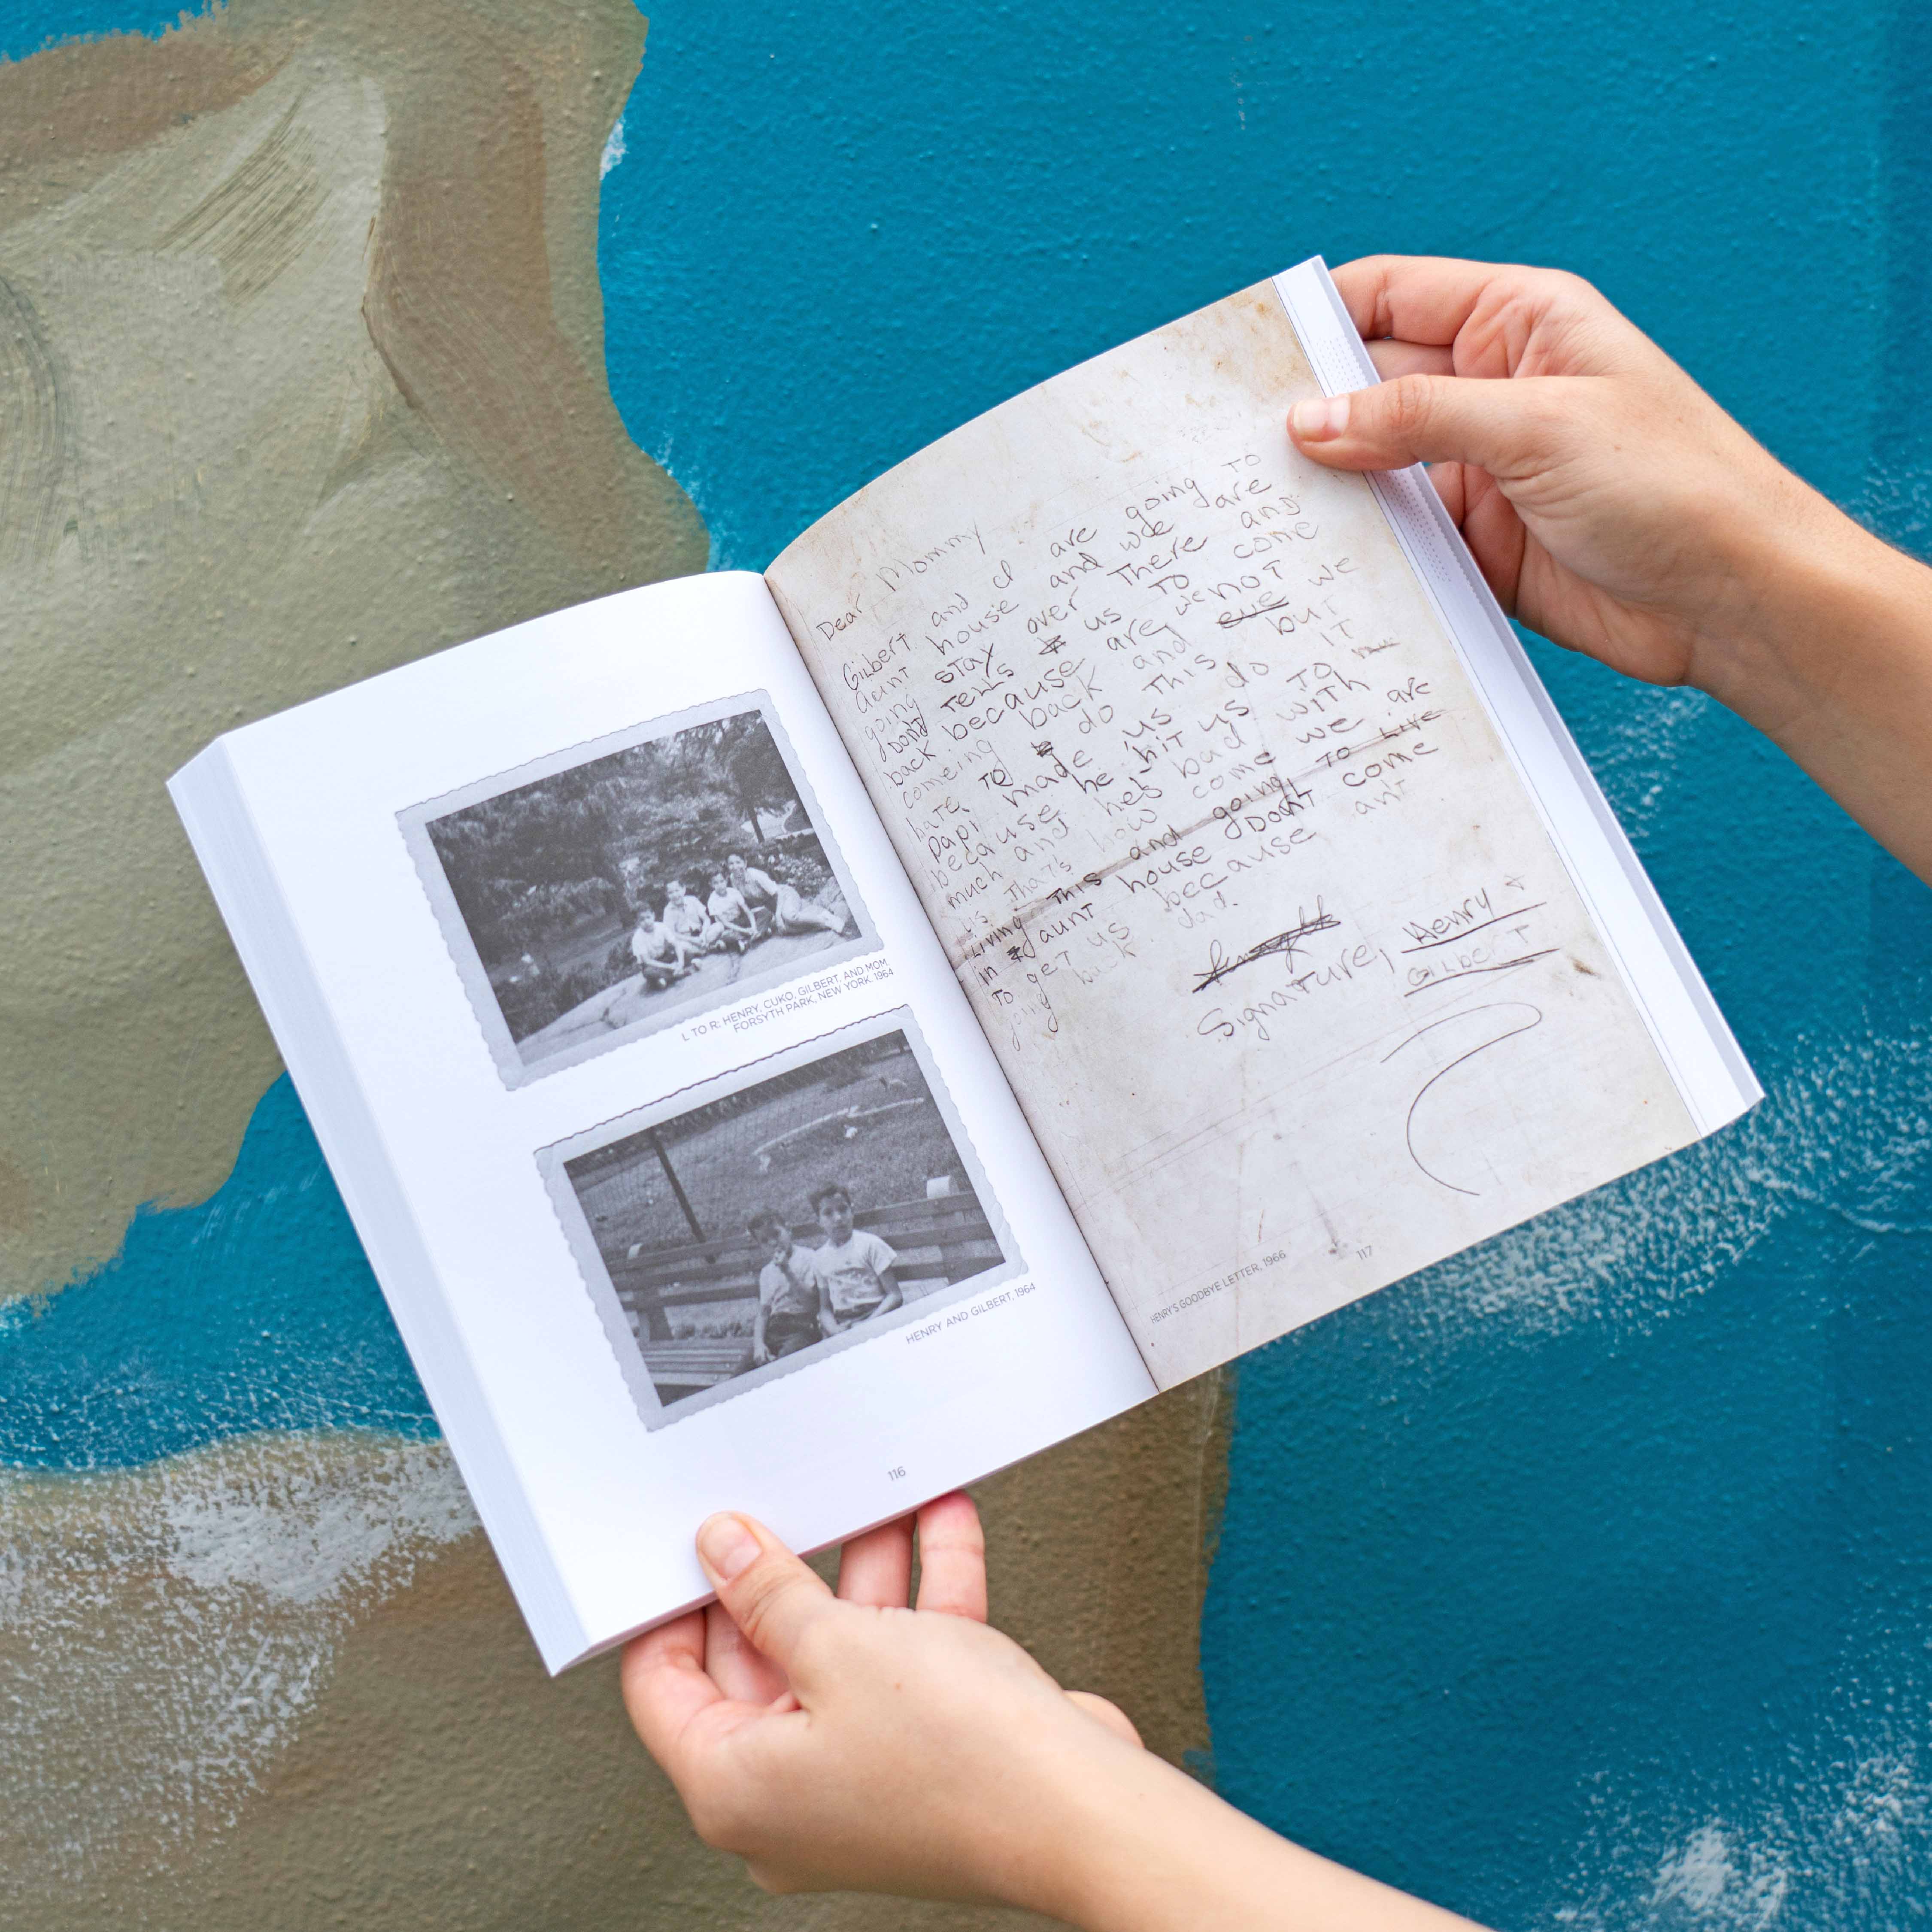 L TO R: HENRY, CUKO, GILBERT, AND MOM.
FORSYTH PARK, NEW YORK, 1964
HENRY AND GILBERT, 1964
116
Dear Mommy
Gilbert and I are going to
aunt house and we are
going stay over There and
Dont Tells us to come
back because are we not
comeing back and we
hate to do This but
Papi made us do IT
because he hit us To
much and hes bad with
us That's how come we are
Living This and going To Live
in aunt house Dont come
To get us because ant
going back dad.
Signature, Henry +
Gilbert
HENRY'S GOODBYE LETTER, 1966
117